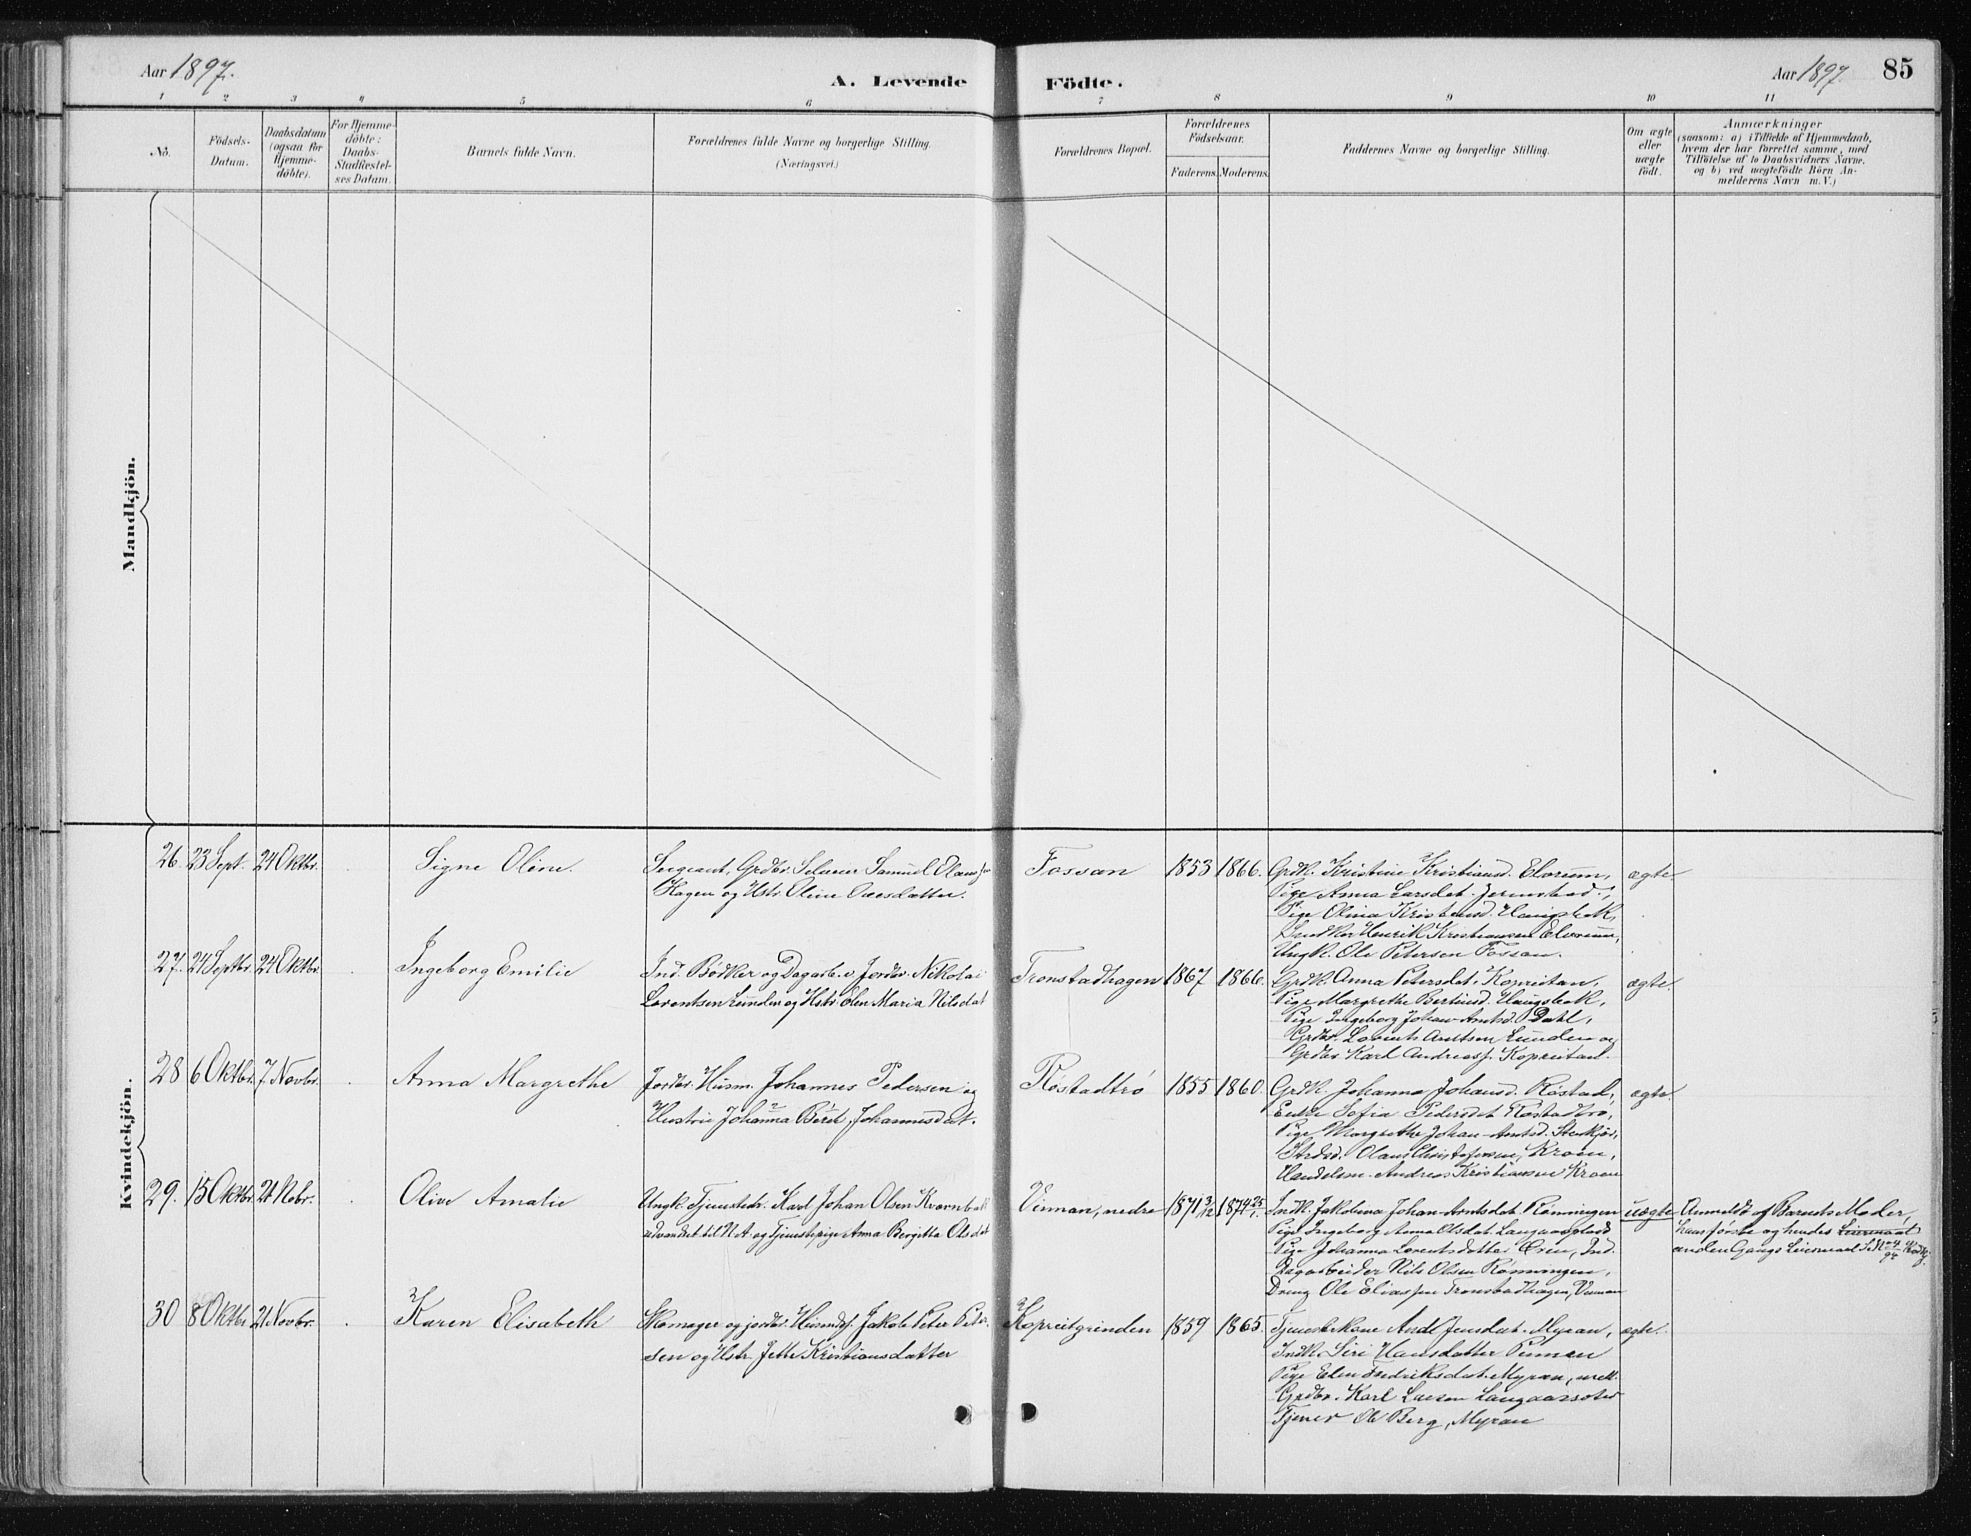 Aar 1897.
A. Levende Födte.
Aar 1897. 85
1 2 3 4 5 6 7 8 9 10 11
No.
Födsels-
Datum.
Daabsdatum
(ogsaa for
Hjemme-
döbte).
For Hjemme-
döbte:
Daabs-
Stadfæstel-
ses Datum.
Barnets fulde Navn.
Forældrenes fulde Navne og borgerlige Stilling.
(Næringsvei.)
Forældrenes Bopæl.
Forældrenes
Födselsaar.
Faderens. Moderens.
Faddernes Navne og borgerlige Stilling.
Om ægte
eller
uægte
födt.
Anmærkninger
(saasom: a) i Tilfælde af Hjemmedaab,
hvem der har forrettet samme, med
Tilföielse af to Daabsvidners Navne,
og b) ved uægtefödte Börn An-
melderens Navn m. V.)
Mandkjön.
Kvindekjön.
26. 23 Sept. 24 Oktbr. Signe Oline.
Sergeant, Grdbr. Selmer Samuel
Hagen og Hstr. Oline
Fossan 1853 1866.
Grdk. Kristine Kristiansd. Elverum,
Pige Anna Larsdat. Jermstad,
Pige Olina Kristensd. Haugsbak,
Henrik Kristiansen Elverum,
Ungk. Ole Petersen Fossan.
ægte.
27. 24 Septbr. 24 Oktbr. Ingeborg Emilie
Ind. Bödker og Dagarb. Jordbr. Nikolai
Lorentsen Lunden og Hstr. Olen Maria Nilsdat
Tronstadhagen 1867 1866.
Grdk. Anna Petersdat. Kopreitan,
Pige Margrethe Berntsd. Haugsbak,
Pige Ingeborg Johan-Arntsd. Dahl,
Grdbr. Lorents Arntsen Lunden og
Grdbr. Karl Andreass. Kopreitan.
ægte.
28 6 Oktbr. 7 Novbr. Anna Margrethe
Jordbr. Husm. Johannes Pedersen og
Hustru Johanna Johannesdat.
Röstadtrö 1855 1860.
Grdk. Johanna Johansd. Röstad,
Enke Sofia Pedersdat Röstadtrö,
Pige Margrethe Johan-Arntsd. Stenkjær,
Olaus Christofersen, Kroen,
Handelsm. Andreas Kristiansen Kroen
ægte.
29. 15 Oktbr. 21 Nobr. Olive Amalie
Ungk. Tjenestedr. Karl Johan Olsen Kvernbak
udvandret til N.A. og Tjenestepige Anna Bergitta Olsdat
Vinnan, nedre 1871 3/12 1874 25/1.
Indk. Jakobina Johan-Arntsdat. Rönningen
Pige Ingeborg Anna Olsdat. Langaasplads
Pige Johanna Lorentsdatter Oren, Ind.
Dagarbeider Nils Olsen Rönningen,
Dreng Ole Eliassen Tronstadhagen, Vinnan
uægte
Anmeldt af Barnets Moder,
hans förste og hendes Leiermaal
anden Gangs Leiermaal
30 8 Oktbr 21 Novbr. Karen Elisabeth
Skomager og jordbr. Husmd. Jakob Peter Peter-
sen og Hstr. Jette Kristiansdatter
Kopreitgrinden 1859 1865.
Tjenestekone Jensdat. Myran,
Indk. Siri Hansdatter
Pige Elen Fredriksdat. Myran,
Grdbr. Karl Larsen
Tjener Ole Berg, Myran
ægte.